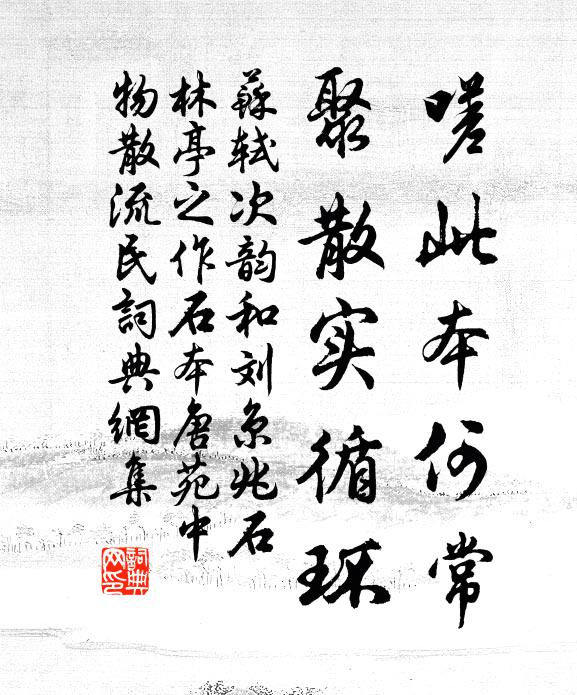 嗟此本何常
聚散实循环
蘇軾次韵和刘京兆石
林亭之作石本唐苑中
物散流民詞典網集
詞典
网印